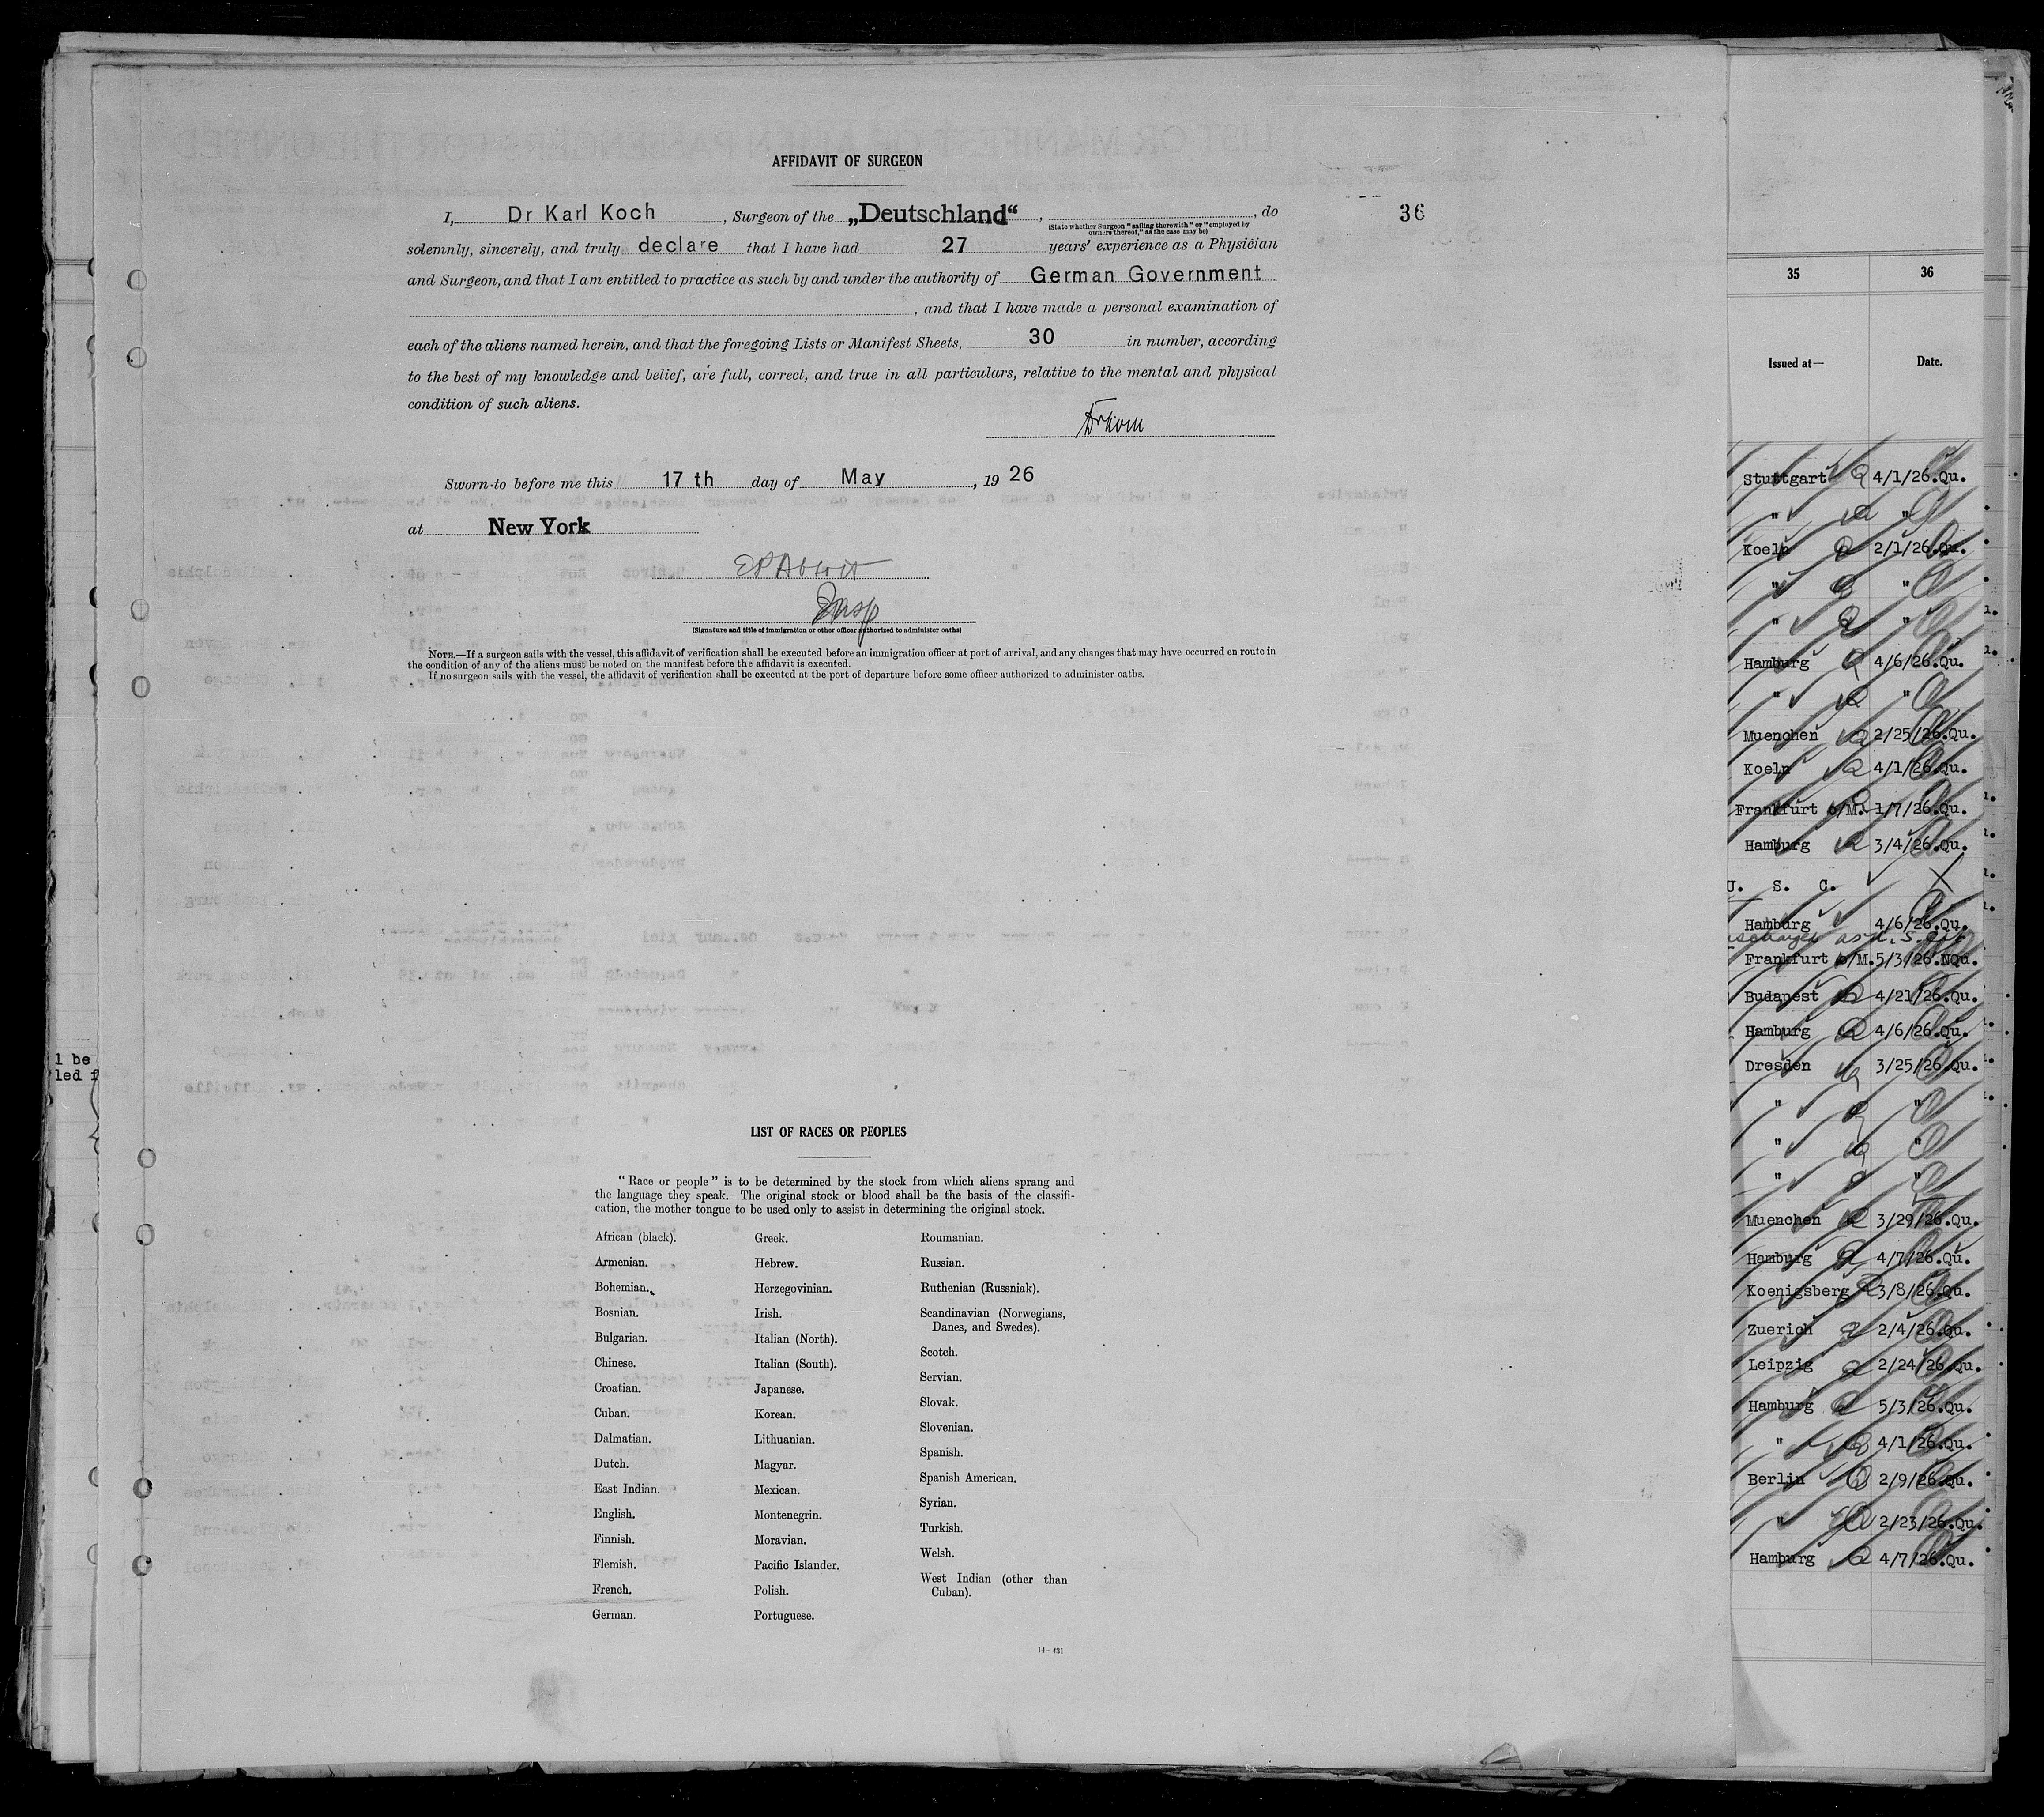 AFFIDAVIT OF SURGEON
I, Dr Karl Koch, Surgeon of the „Deutschland“, , do
(State whether Surgeon "sailing therewith" or "employed by
owners thereof," as the case may be)
36
solemnly, sincerely, and truly declare that I have had 27 years' experience as a Physician
and Surgeon, and that I am entitled to practice as such by and under the authority of German Government
, and that I have made a personal examination of
each of the aliens named herein, and that the foregoing Lists or Manifest Sheets, 30 in number, according
to the best of my knowledge and belief, are full, correct, and true in all particulars, relative to the mental and physical
condition of such aliens.
Sworn to before me this 17 th day of May, 19 26
at New York
(Signature and title of immigration or other officer authorized to administer oaths)
NOTE.—If a surgeon sails with the vessel, this affidavit of verification shall be executed before an immigration officer at port of arrival, and any changes that may have occurred en route in
the condition of any of the aliens must be noted on the manifest before the affidavit is executed.
If no surgeon sails with the vessel, the affidavit of verification shall be executed at the port of departure before some officer authorized to administer oaths.
LIST OF RACES OR PEOPLES
"Race or people" is to be determined by the stock from which aliens sprang and
the language they speak. The original stock or blood shall be the basis of the classifi-
cation, the mother tongue to be used only to assist in determining the original stock.
African (black).
Armenian.
Bohemian.
Bosnian.
Bulgarian.
Chinese.
Croatian.
Cuban.
Dalmatian.
Dutch.
East Indian.
English.
Finnish.
Flemish.
French.
German.
Greek.
Hebrew.
Herzegovinian.
Irish.
Italian (North).
Italian (South).
Japanese.
Korean.
Lithuanian.
Magyar.
Mexican.
Montenegrin.
Moravian.
Pacific Islander.
Polish.
Portuguese.
Roumanian.
Russian.
Ruthenian (Russniak).
Scandinavian (Norwegians,
Danes, and Swedes).
Scotch.
Servian.
Slovak.
Slovenian.
Spanish.
Spanish American.
Syrian.
Turkish.
Welsh.
West Indian (other than
Cuban).
14—431
35 36
Issued at— Date.
Stuttgart 4/1/26.Qu.
" "
Koeln 2/1/26.Qu.
" "
" "
Hamburg 4/6/26.Qu.
" "
Muenchen 2/25/26.Qu.
Koeln 4/1/26.Qu.
Frankfurt o/M. 1/7/26.Qu.
Hamburg 3/4/26.Qu.
U. S. C.
Hamburg 4/6/26.Qu.
Frankfurt o/M. 5/3/26.NQu.
Budapest 4/21/26.Qu.
Hamburg 4/6/26.Qu.
Dresden 3/25/26.Qu.
" "
" "
" "
Muenchen 3/29/26.Qu.
Hamburg 4/7/26.Qu.
Koenigsberg 3/8/26.Qu.
Zuerich 2/4/26.Qu.
Leipzig 2/24/26.Qu.
Hamburg 5/3/26.Qu.
" 4/1/26.Qu.
Berlin 2/9/26.Qu.
" 2/23/26.Qu.
Hamburg 4/7/26.Qu.